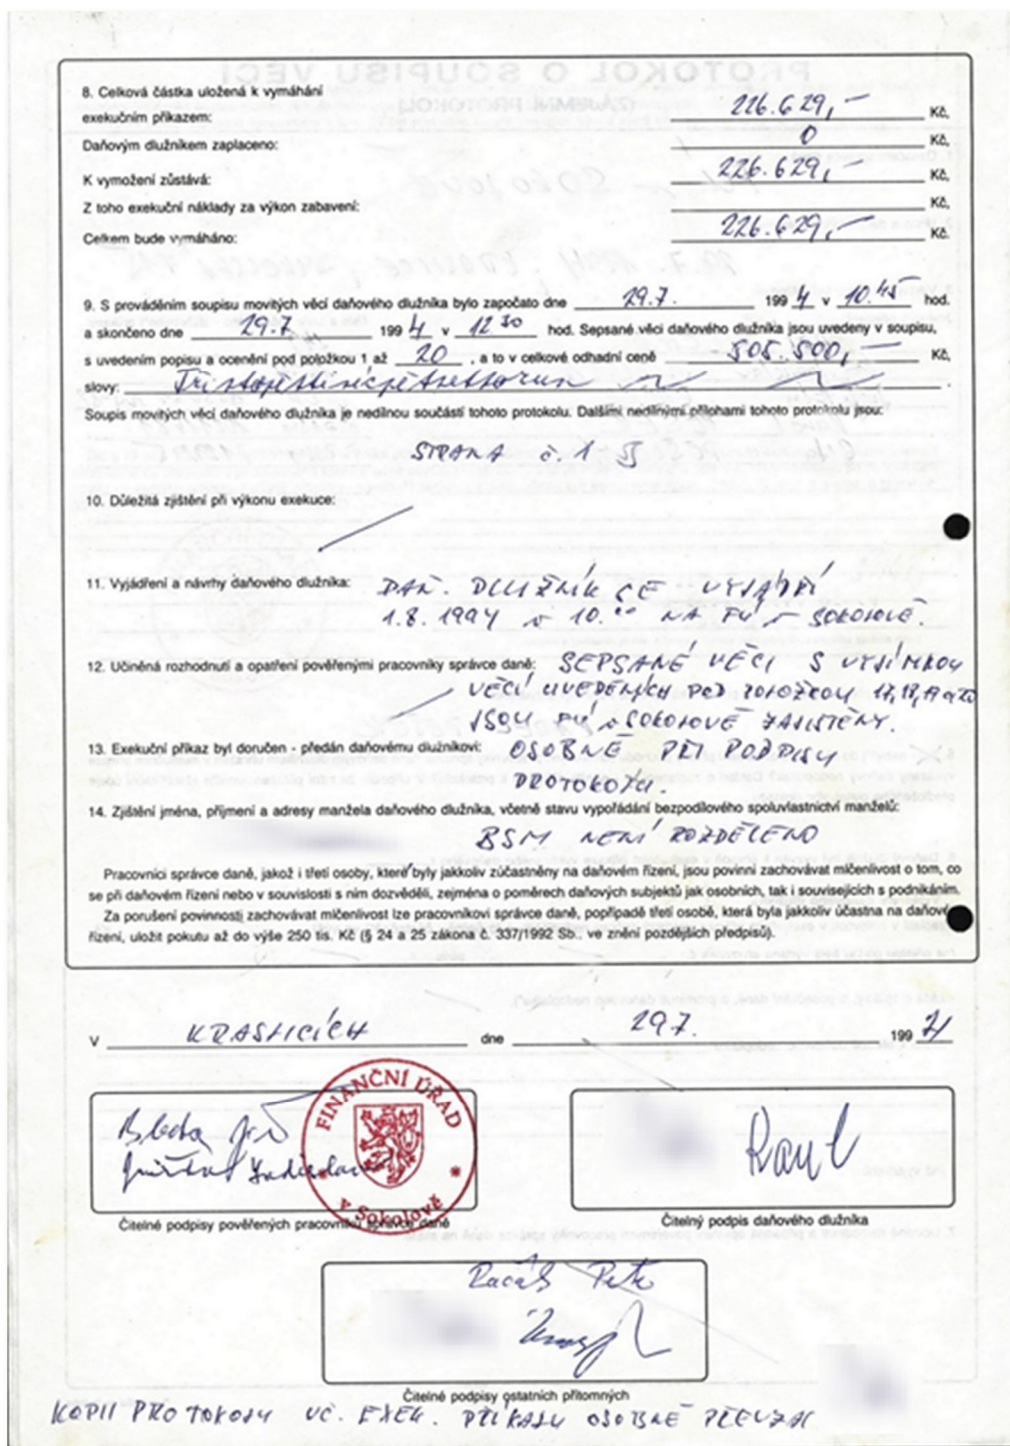 8. Celková částka uložená k vymáhání
exekučním příkazem: 226.629,— Kč,
Daňovým dlužníkem zaplaceno: 0 Kč,
K vymožení zůstává: 226.629,— Kč,
Z toho exekuční náklady za výkon zabavení: Kč,
Celkem bude vymáháno: 226.629,— Kč.
9. S prováděním soupisu movitých věcí daňového dlužníka bylo započato dne 29.7. 1994 v 10.45 hod.
a skončeno dne 29.7 1994 v 12 30 hod. Sepsané věci daňového dlužníka jsou uvedeny v soupisu,
s uvedením popisu a ocenění pod položkou 1 až 20, a to v celkové odhadní ceně 505.500,— Kč,
slovy:
Soupis movitých věcí daňového dlužníka je nedílnou součástí tohoto protokolu. Dalšími nedílnými přílohami tohoto protokolu jsou:
STRANA č. 1 -
10. Důležitá zjištění při výkonu exekuce:
11. Vyjádření a návrhy daňového dlužníka: DAŇ. DLUŽNÍK SE VYJÁDŘÍ
1.8.1994 v 10.00 NA FÚ v SOKOLOVĚ.
12. Učiněná rozhodnutí a opatření pověřenými pracovníky správce daně: SEPSANÉ VĚCI S VYJÍMKOU
VĚCÍ UVEDENÝCH POD POLOŽKOU 17, 18, 19 a 20
JSOU FÚ v SOKOLOVĚ ZAJIŠTĚNY.
13. Exekuční příkaz byl doručen - předán daňovému dlužníkovi: OSOBNĚ PŘI PODPISU
PROTOKOLU.
14. Zjištění jména, příjmení a adresy manžela daňového dlužníka, včetně stavu vypořádání bezpodílového spoluvlastnictví manželů:
BSM NENÍ ROZDĚLENO
Pracovníci správce daně, jakož i třetí osoby, které byly jakkoliv zúčastněny na daňovém řízení, jsou povinni zachovávat mlčenlivost o tom, co
se při daňovém řízení nebo v souvislosti s ním dozvěděli, zejména o poměrech daňových subjektů jak osobních, tak i souvisejících s podnikáním.
Za porušení povinnosti zachovávat mlčenlivost lze pracovníkovi správce daně, popřípadě třetí osobě, která byla jakkoliv účastna na daňovém
řízení, uložit pokutu až do výše 250 tis. Kč (§ 24 a 25 zákona č. 337/1992 Sb., ve znění pozdějších předpisů).
V KRASLICÍCH dne 29.7. 1994
FINANČNÍ ÚŘAD
v Sokolově
Čitelné podpisy pověřených pracovníků správce daně
Čitelný podpis daňového dlužníka
Petr
Čitelné podpisy ostatních přítomných
KOPII PROTOKOLU VČ. EXEK. PŘÍKAZU OSOBNĚ PŘEVZAL